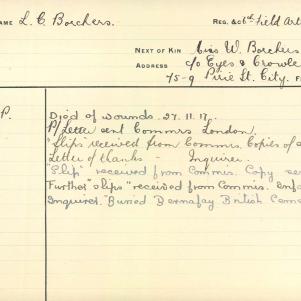 AME L. C. Borchers. REG. & 6th Field Art
NEXT OF KIN Miss W. Borchers
ADDRESS c/o Eyes & Crowle
75-9 Pirie St. City.
P. Died of wounds. 27.11.17.
P/Letter sent Commrs London.
"Slips" received from Commis. Copies of
Letter of thanks - Inquirer.
"Slip" received from Commis. Copy se
Further "slips" received from Commis. enf
Inquirer. "Buried Bernafay British Ceme